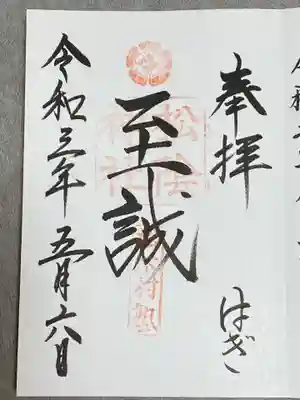 奉拝
はぎ
至誠
松陰神社
令和三年五月六日